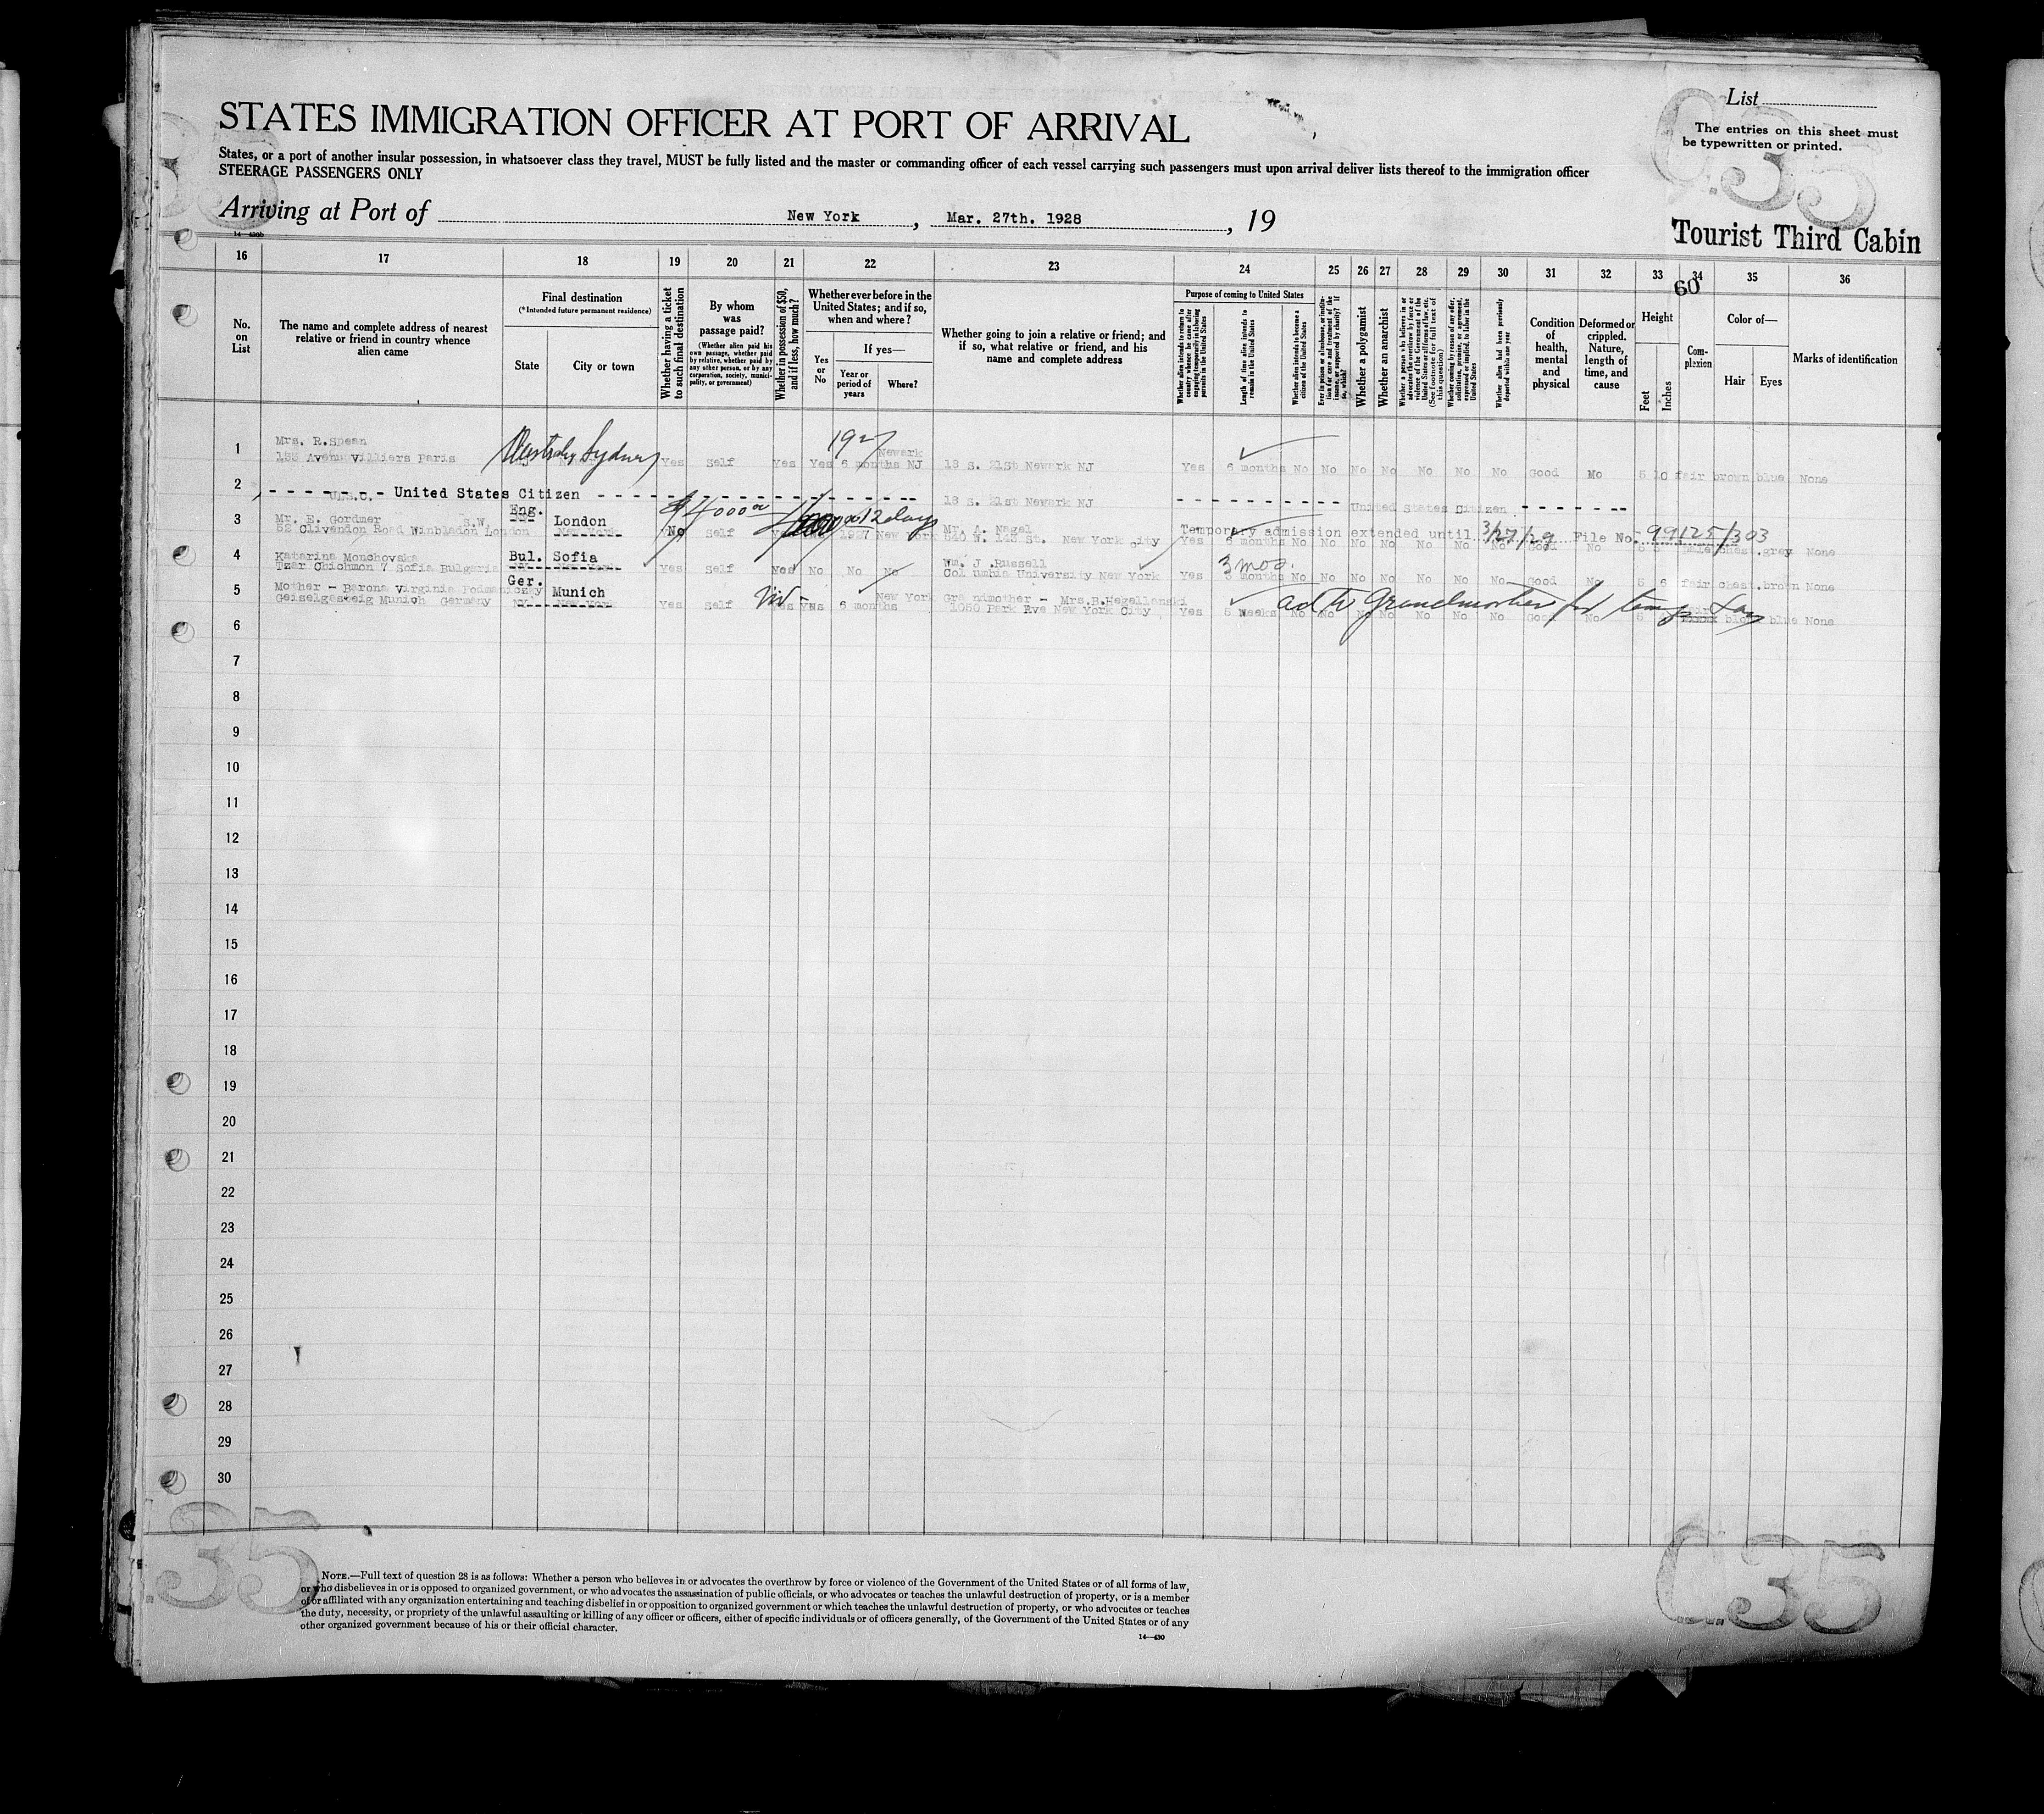 List
The entries on this sheet must
be typewritten or printed.
STATES IMMIGRATION OFFICER AT PORT OF ARRIVAL
States, or a port of another insular possession, in whatsoever class they travel, MUST be fully listed and the master or commanding officer of each vessel carrying such passengers must upon arrival deliver lists thereof to the immigration officer
STEERAGE PASSENGERS ONLY
Arriving at Port of New York, Mar. 27th. 1928, 19
Tourist Third Cabin
14—430b
16 17 18 19 20 21 22 23 24 25 26 27 28 29 30 31 32 33 34 35 36
60
No. on List
The name and complete address of nearest relative or friend in country whence alien came
Final destination
(*Intended future permanent residence)
State
City or town
Whether having a ticket to such final destination
By whom was passage paid?
(Whether alien paid his own passage, whether paid by relative, whether paid by any other person, or by any corporation, society, municipality, or government)
Whether in possession of $50, and if less, how much?
Whether ever before in the United States; and if so, when and where?
Yes or No
If yes—
Year or period of years
Where?
Whether going to join a relative or friend; and if so, what relative or friend, and his name and complete address
Purpose of coming to United States
Whether alien intends to return to country whence he came after engaging temporarily in laboring pursuits in the United States
Length of time alien intends to remain in the United States
Whether alien intends to become a citizen of the United States
Ever in prison or almshouse, or institution for care and treatment of the insane, or supported by charity? If so, which?
Whether a polygamist
Whether an anarchist
Whether a person who believes in or advocates the overthrow by force or violence of the Government of the United States or all forms of law, etc. (See footnote for full text of this question)
Whether coming by reason of any offer, solicitation, promise, or agreement, expressed or implied, to labor in the United States
Whether alien had been previously deported within one year
Condition of health, mental and physical
Deformed or crippled. Nature, length of time, and cause
Height
Feet
Inches
Com-plexion
Color of—
Hair
Eyes
Marks of identification
1 Mrs. R.Spean 1927 Newark
155 Avenu Villiers Paris Australia Sydney Yes Self Yes Yes 6 months NJ 18 S. 21St Newark NJ Yes 6 months No No No No No No No Good No 5 10 fair brown blue None
2 U.S.C. - United States Citizen 18 S. 21st Newark NJ United States Citizen
3 Mr. E. Gordmer S.W. Eng. London $4000 12 days Mr. A. Nagel Temporary admission extended until 3/27/29 File No. 99125/303
52 Clivendon Road Winbladon London New York No Self 1927 New York 540 W. 143 St. New York City Yes 6 months No No No No No No No Good No grey None
4 Katarina Monchovska Bul. Sofia Wm. J .Russell 3 mos.
Tzar Chichmon 7 Sofia Bulgaria New York Yes Self No No No Columbia University New York Yes 3 months No No No No No No No Good No 5 6 fair chest.brown None
5 Mother - Barona Virginia Ger. Munich New York Grandmother - Mrs.B.Hegellanski ad to Grandmother for temp
Geiselgasteig Munich Germany NY New York Yes Self Yes Yes 6 months 1050 Park Ave New York City Yes 5 Weeks No No No No No No No Good No 5 blue None
6
7
8
9
10
11
12
13
14
15
16
17
18
19
20
21
22
23
24
25
26
27
28
29
30
NOTE.—Full text of question 28 is as follows: Whether a person who believes in or advocates the overthrow by force or violence of the Government of the United States or of all forms of law,
or who disbelieves in or is opposed to organized government, or who advocates the assassination of public officials, or who advocates or teaches the unlawful destruction of property, or is a member
of or affiliated with any organization entertaining and teaching disbelief in or opposition to organized government or which teaches the unlawful destruction of property, or who advocates or teaches
the duty, necessity, or propriety of the unlawful assaulting or killing of any officer or officers, either of specific individuals or of officers generally, of the Government of the United States or of any
other organized government because of his or their official character.
14—430
35